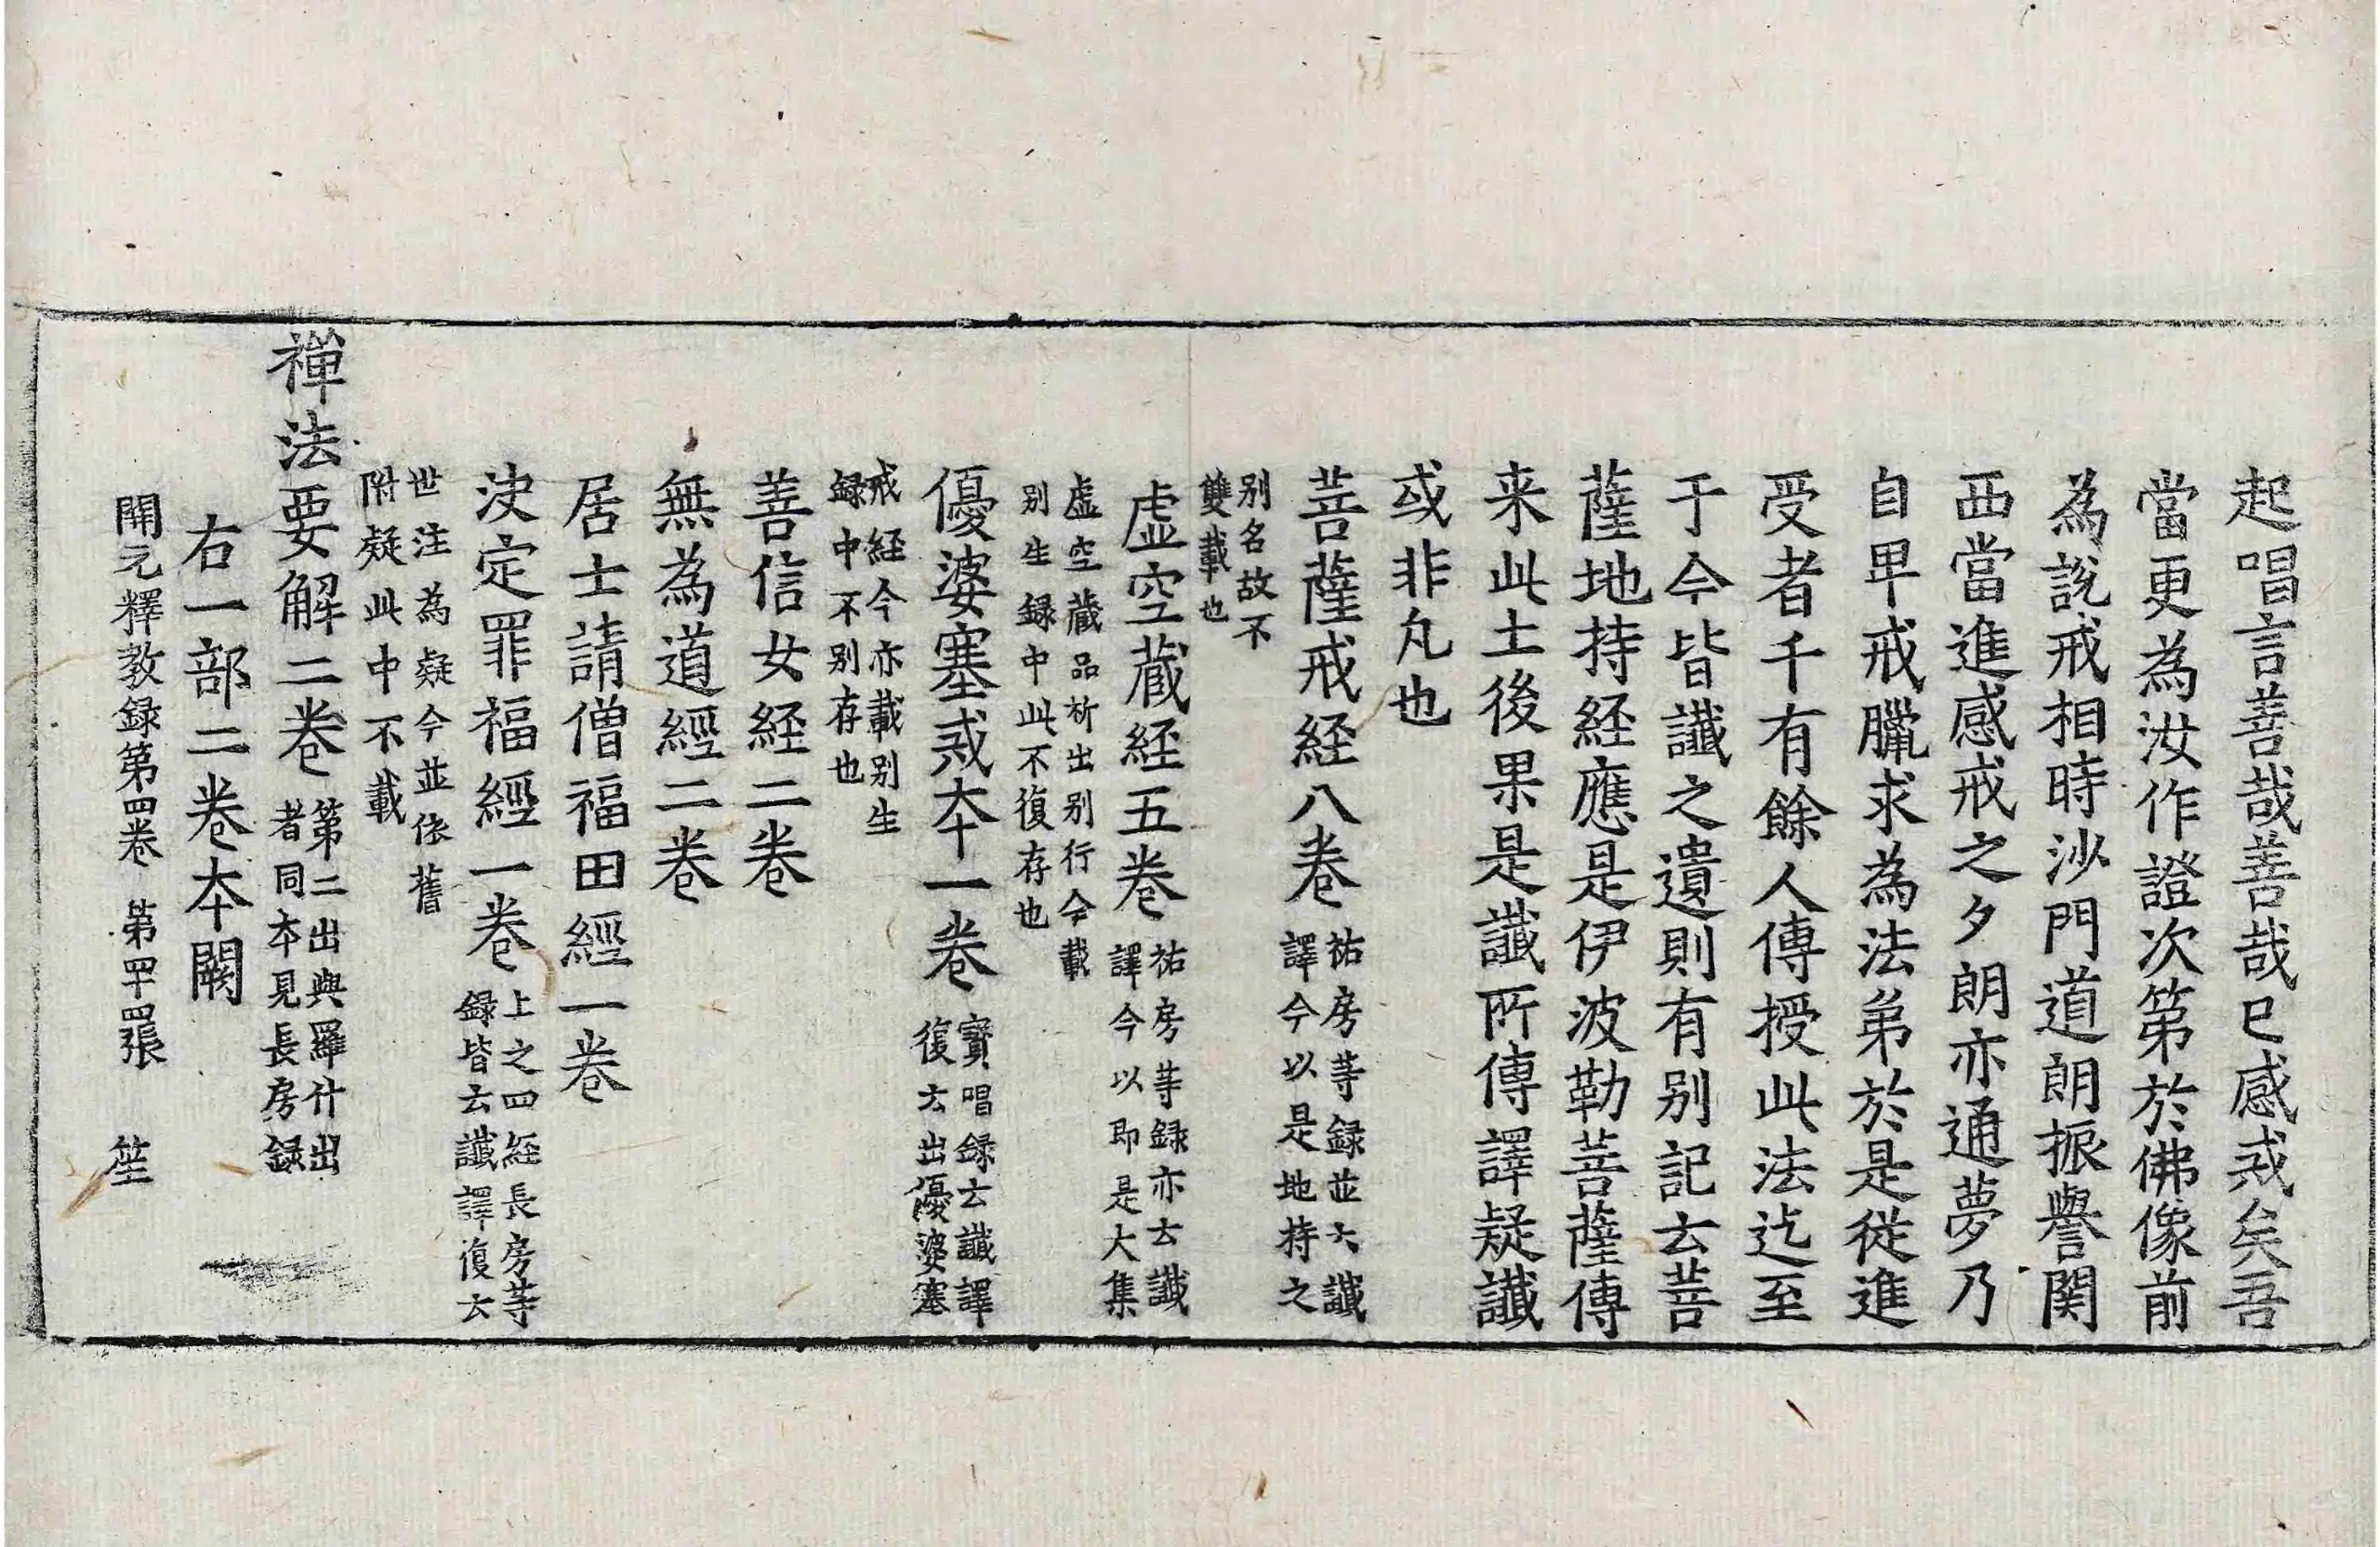 起唱言善哉善哉已感戒矣吾
當更為汝作證次第於佛像前
為説戒相時沙門道朗振譽関
西當進感戒之夕朗亦通夢乃
自卑戒臘求為法弟於是從進
受者千有餘人傳授此法迄至
于今皆讖之遺則有别記云菩
薩地持経應是伊波勒菩薩傳
来此土後果是讖所傳譯疑讖
或非凡也
菩薩戒経八卷
祐房等録並云讖
譯今以是地持之
别名故不
雙載也
虚空蔵経五卷
祐房等録亦云讖
譯今以即是大集
虚空藏品析出别行今載
别生録中此不復存也
優婆塞戒本一卷
寶唱録云讖譯
復云出優婆塞
戒経今亦載别生
録中不别存也
善信女経二卷
無為道經二卷
居士請僧福田經一卷
決定罪福經一卷
上之四経長房等
録皆云讖譯復云
世注為疑今並依舊
附疑此中不載
禅法要解二卷
第二出與羅什出
者同本見長房録
右一部二卷本闕
開元釋教録第四卷 第四十四張 笙